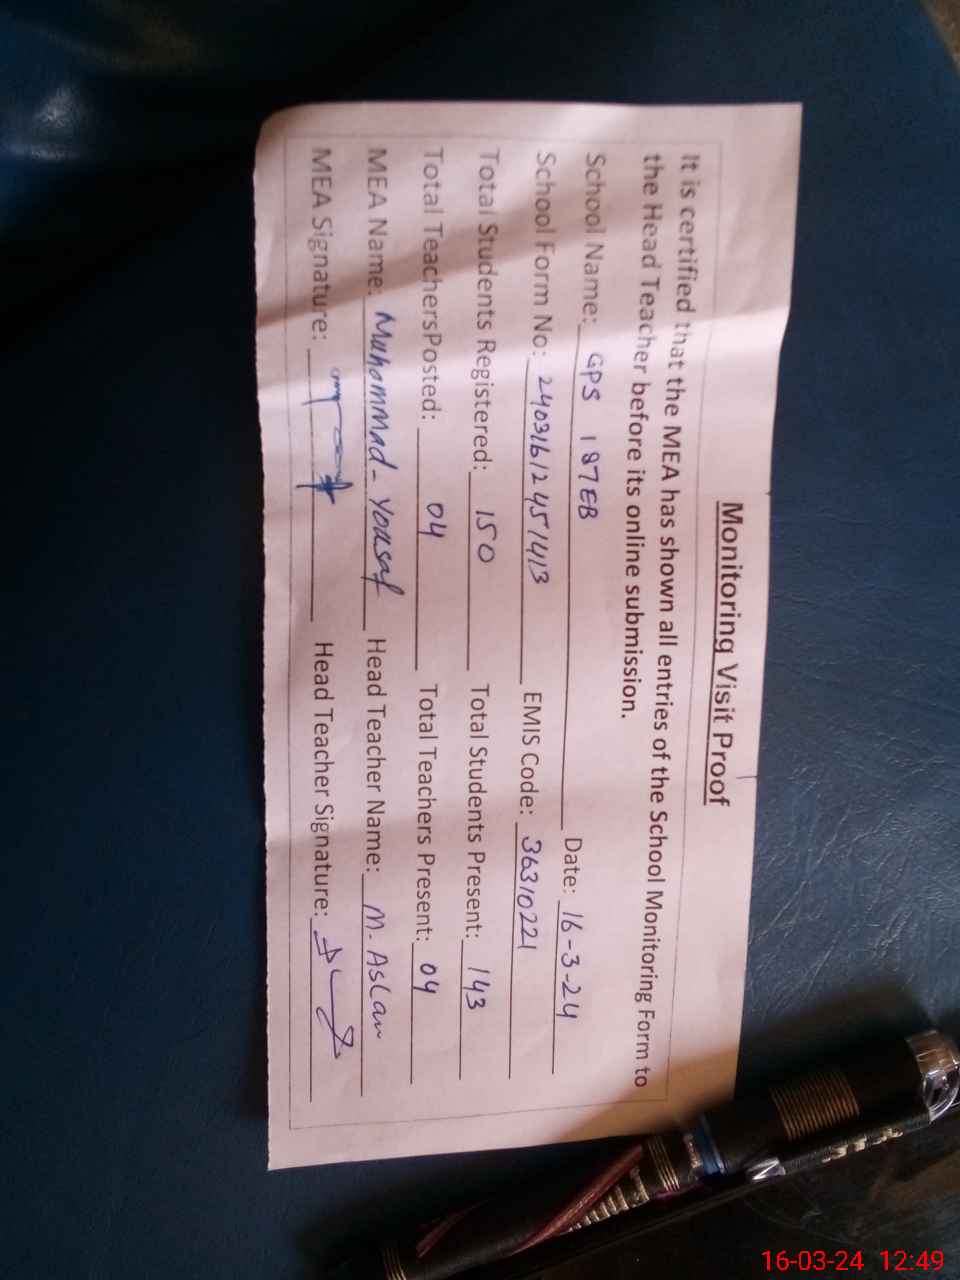 Monitoring Visit Proof
It is certified that the MEA has shown all entries of the School Monitoring Form to
the Head Teacher before its online submission.
School Name: GPS 187EB Date: 16-3-24
School Form No: 240316124511413 EMIS Code: 36310221
Total Students Registered: 150 Total Students Present: 143
Total TeachersPosted: 04 Total Teachers Present: 04
MEA Name: Muhammad-Yousaf Head Teacher Name: M. Aslam
MEA Signature: Head Teacher Signature:
16-03-24 12:49